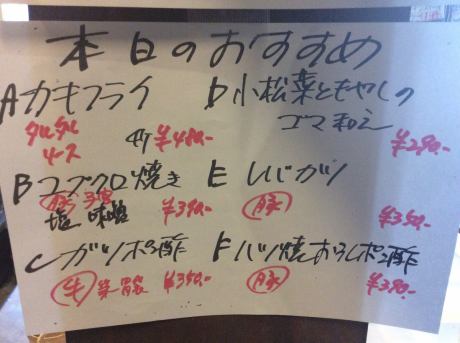 本日のおすすめ
Aカキフライ
タルタル
ソース
4ケ ¥480.-
Bコブクロ焼き
豚 子宮
塩 味噌 ¥390.-
Cガツポン酢
牛 第一胃袋 ¥350.-
D小松菜ともやしの
ゴマ和え
¥290.-
E レバカツ
豚
¥350.-
F ハツ焼おろしポン酢
豚
¥390.-